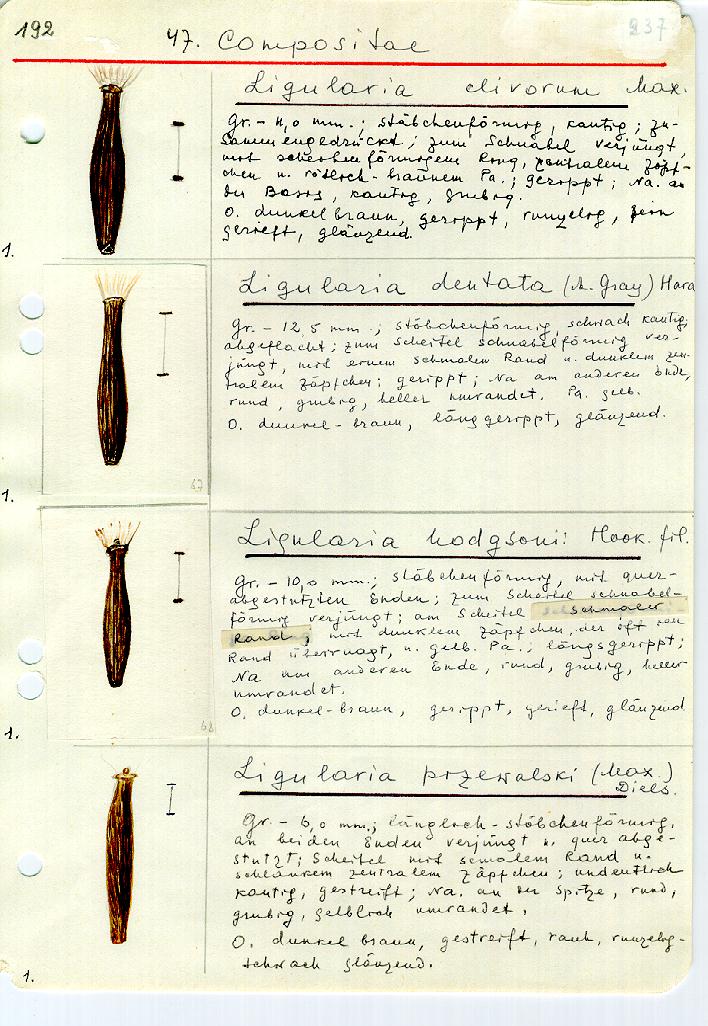 192
47. Compositae
237
Ligularia clivorum Max.
Gr. - 11,0 mm.; stäbchenförmig, kantig; zu-
sammengedrückt; zum Schnabel verjüngt,
mit scheibenförmigem Ring, zentralem Zäpf-
chen u. rötlich-braunem Pa.; gerippt; Na. an
der Basis, kantig, grubig.
O. dunkelbraun, gerippt, runzelig, fein
gerieft, glänzend.
1.
Ligularia dentata (A. Gray) Hara
Gr. - 12,5 mm.; stäbchenförmig, schwach kantig;
abgeflacht; zum Scheitel schnabelförmig ver-
jüngt, mit einem schmalen Rand u. dunklem zen-
tralem Zäpfchen; gerippt; Na am anderen Ende,
rund, grubig, heller umrandet. Pa. gelb.
O. dunkel-braun, längsgerippt, glänzend.
67
1.
Ligularia hodgsoni: Hook. fil.
Gr. - 10,0 mm.; stäbchenförmig, mit quer-
abgestutzten Enden; zum Scheitel schnabel-
förmig verjüngt; am Scheitel schmaler
Rand; mit dunklem Zäpfchen, der oft den
Rand überragt, u. gelb. Pa.; längsgerippt;
Na am anderen Ende, rund, grubig, heller
umrandet.
O. dunkel-braun, gerippt, gerieft, glänzend
68
1.
Ligularia przewalski (Max.)
Diels.
Gr. - 6,0 mm.; länglich-stäbchenförmig,
an beiden Enden verjüngt u. quer abge-
stutzt; Scheitel mit schmalem Rand u.
schlankem zentralem Zäpfchen; undeutlich
kantig, gestreift; Na. an der Spitze, rund,
grubig, gelblich umrandet.
O. dunkel braun, gestreift, rauh, runzelig-
schwach glänzend.
1.